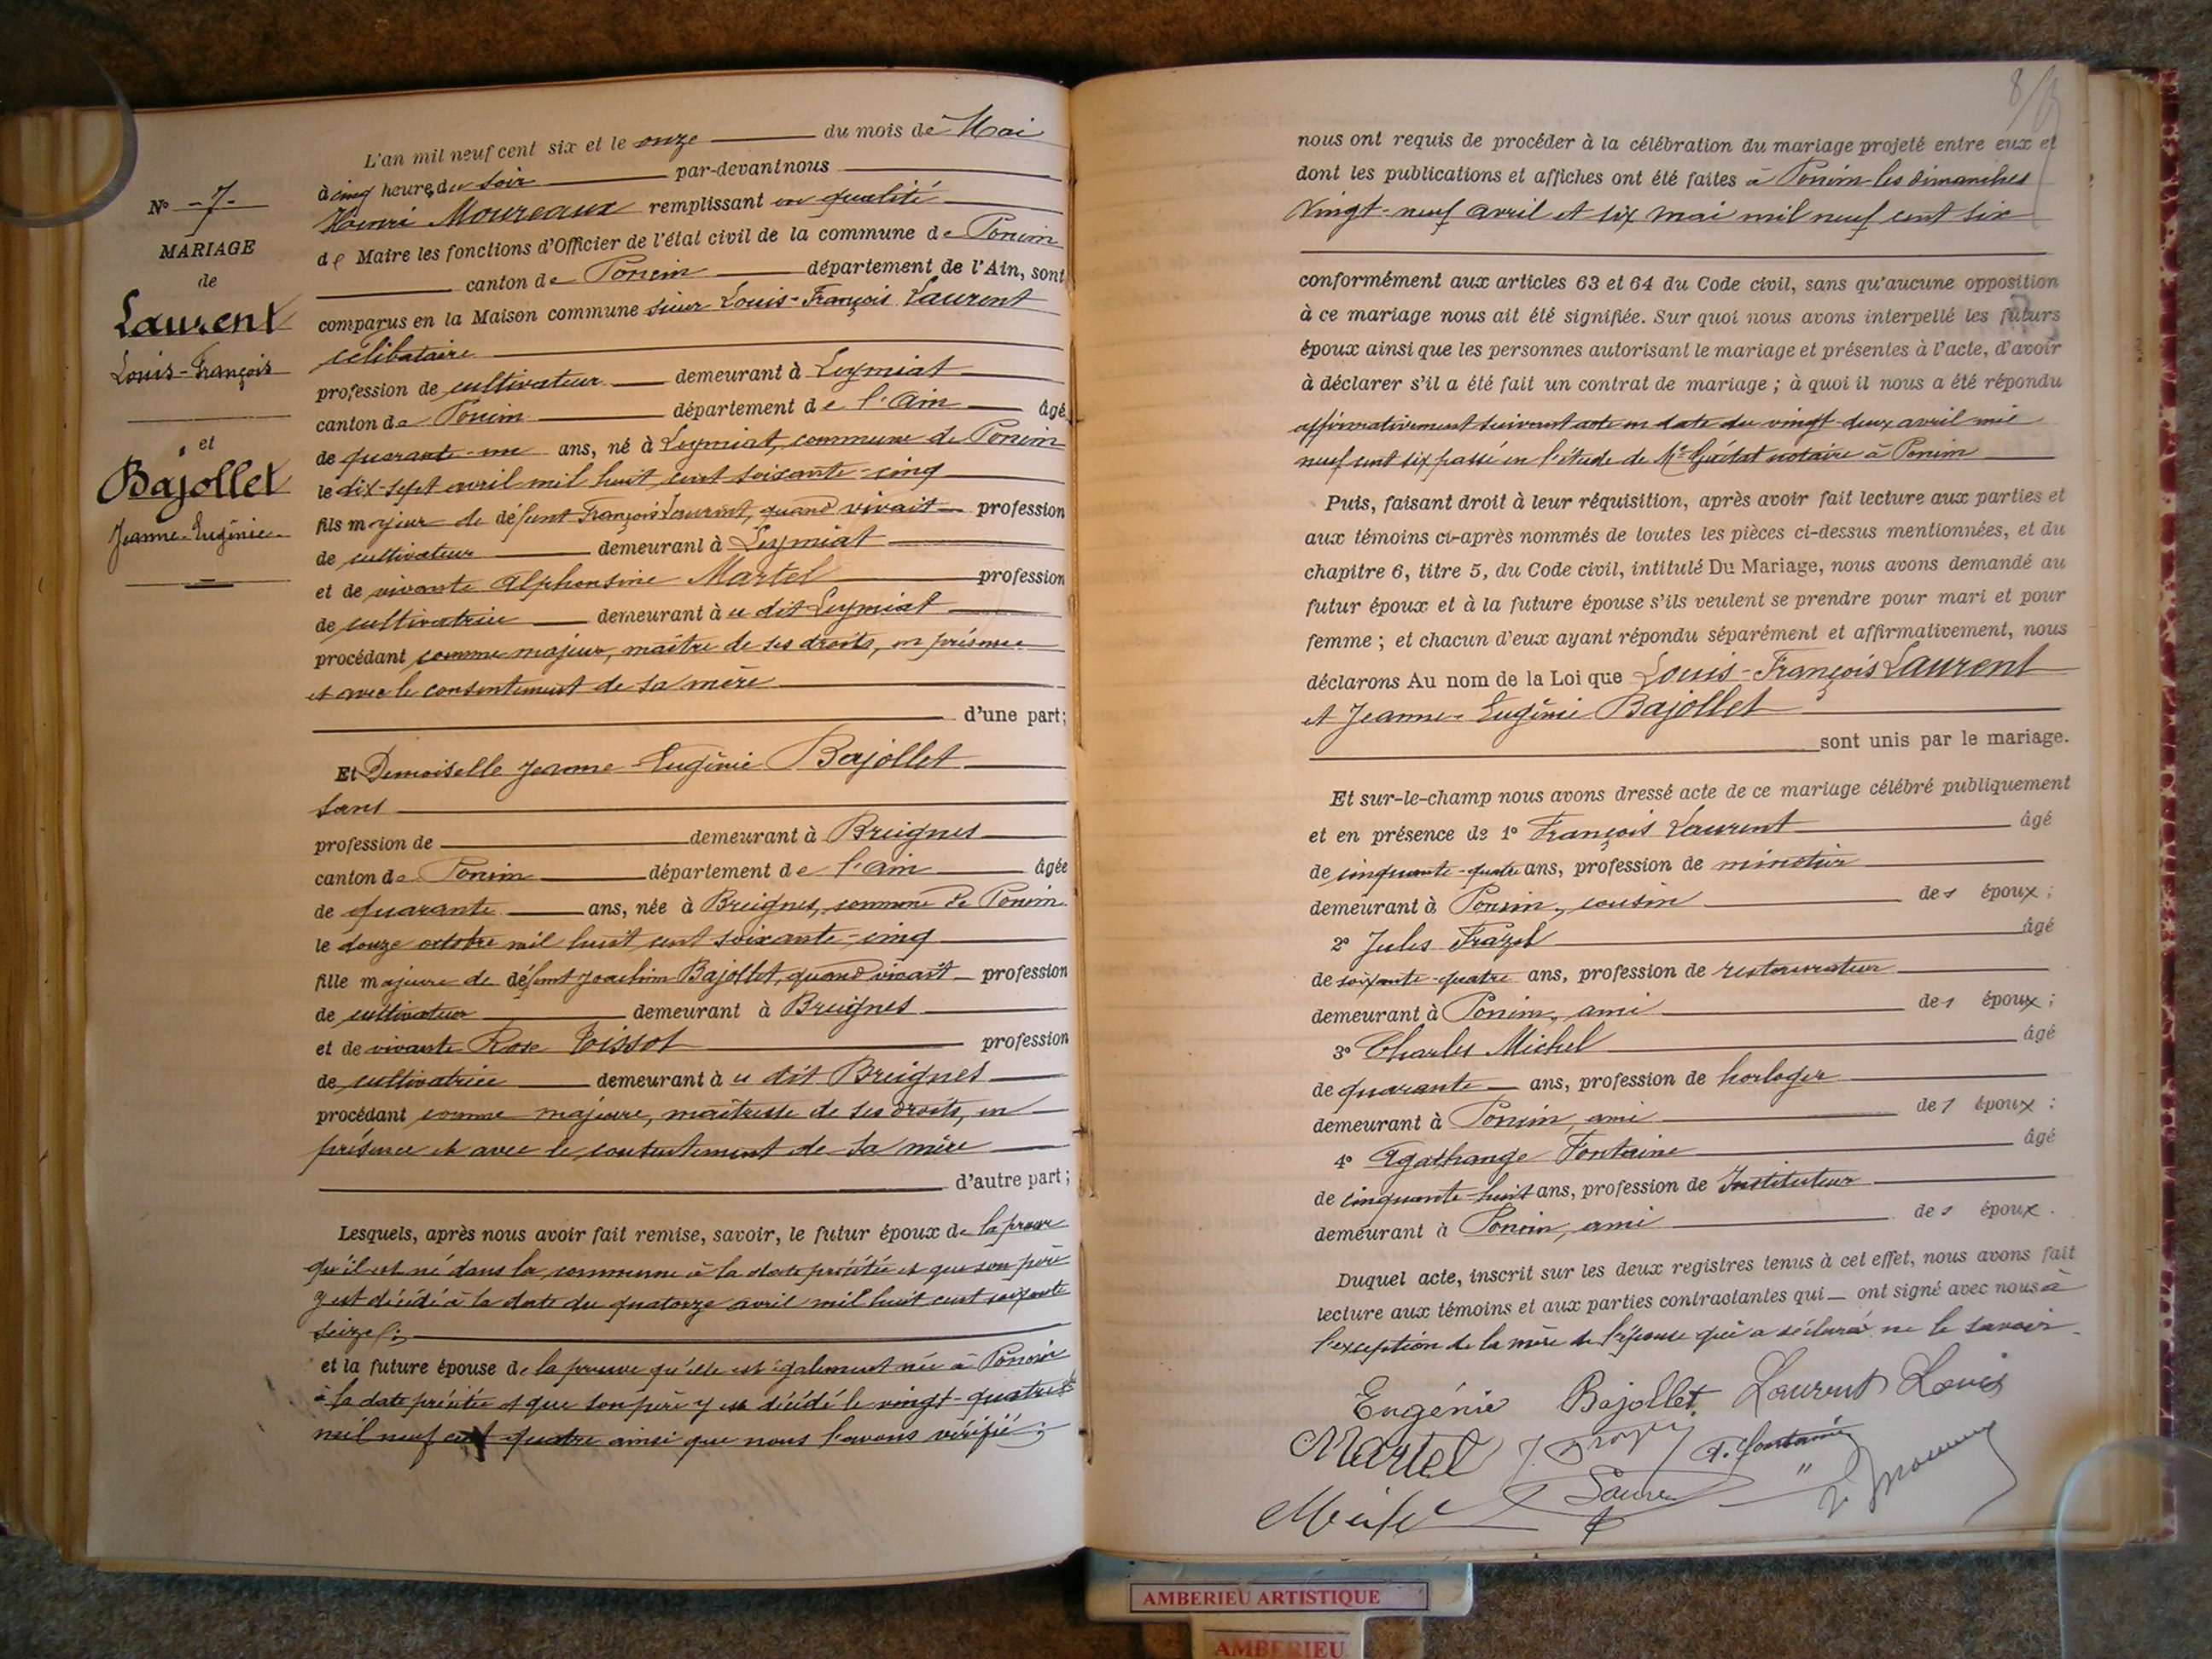 N° 7
MARIAGE
de
Laurent
Louis-François
et
Bajollet
Jeanne-Eugénie
L'an mil neuf cent six et le onze du mois de Mai
à cinq heures du soir par-devant nous
Henri Moureaux remplissant en qualité
de Maire les fonctions d'Officier de l'état civil de la commune de Poncin
canton de Poncin département de l'Ain, sont
comparus en la Maison commune sieur Louis-François Laurent
célibataire
profession de cultivateur demeurant à Leymiat
canton de Poncin département de l'Ain âgé
de quarante-un ans, né à Leymiat, commune de Poncin
le dix-sept avril mil huit cent soixante-cinq
fils majeur de défunt François Laurent, quand vivait profession
de cultivateur demeurant à Leymiat
et de vivante Alphonsine Martel profession
de cultivatrice demeurant à u dit Leymiat
procédant comme majeur, maître de ses droits, en présence
et avec le consentement de sa mère
d'une part;
Et Demoiselle Jeanne-Eugénie Bajollet
sans
profession de demeurant à Breignes
canton de Poncin département de l'Ain âgée
de quarante ans, née à Breignes, commune de Poncin
le douze octobre mil huit cent soixante-cinq
fille majeure de défunt Joachim Bajollet, quand vivait profession
de cultivateur demeurant à Breignes
et de vivante Rose Tissot profession
de cultivatrice demeurant à u dit Breignes
procédant comme majeure, maîtresse de ses droits, en
présence et avec le consentement de sa mère
d'autre part;
Lesquels, après nous avoir fait remise, savoir, le futur époux de la preuve
qu'il est né dans la commune à la date précitée et que son père
y est décédé à la date du quatorze avril mil huit cent soixante
seize;
et la future épouse de la preuve qu'elle est également née à Poncin
à la date précitée et que son père y est décédé le vingt-quatre
mil neuf cent quatre ainsi que nous l'avons vérifié;
8
nous ont requis de procéder à la célébration du mariage projeté entre eux et
dont les publications et affiches ont été faites à Poncin les dimanches
vingt-neuf avril et six mai mil neuf cent six
conformément aux articles 63 et 64 du Code civil, sans qu'aucune opposition
à ce mariage nous ait été signifiée. Sur quoi nous avons interpellé les futurs
époux ainsi que les personnes autorisant le mariage et présentes à l'acte, d'avoir
à déclarer s'il a été fait un contrat de mariage; à quoi il nous a été répondu
affirmativement suivant acte en date du vingt-deux avril mil
neuf cent six passé en l'étude de Me notaire à Poncin
Puis, faisant droit à leur réquisition, après avoir fait lecture aux parties et
aux témoins ci-après nommés de toutes les pièces ci-dessus mentionnées, et du
chapitre 6, titre 5, du Code civil, intitulé Du Mariage, nous avons demandé au
futur époux et à la future épouse s'ils veulent se prendre pour mari et pour
femme; et chacun d'eux ayant répondu séparément et affirmativement, nous
déclarons Au nom de la Loi que Louis-François Laurent
et Jeanne-Eugénie Bajollet
sont unis par le mariage.
Et sur-le-champ nous avons dressé acte de ce mariage célébré publiquement
et en présence de 1° François Laurent âgé
de cinquante-quatre ans, profession de minotier
demeurant à Poncin, cousin des époux;
2° Jules âgé
de soixante-quatre ans, profession de restaurateur
demeurant à Poncin, ami des époux;
3° Charles Michel âgé
de quarante ans, profession de horloger
demeurant à Poncin, ami des époux;
4° Agathange Fontaine âgé
de cinquante-huit ans, profession de Instituteur
demeurant à Poncin, ami des époux.
Duquel acte, inscrit sur les deux registres tenus à cet effet, nous avons fait
lecture aux témoins et aux parties contractantes qui ont signé avec nous à
l'exception de la mère de l'épouse qui a déclaré ne le savoir
Eugénie Bajollet Laurent Louis
Martel A. Fontaine
AMBERIEU ARTISTIQUE
AMBERIEU